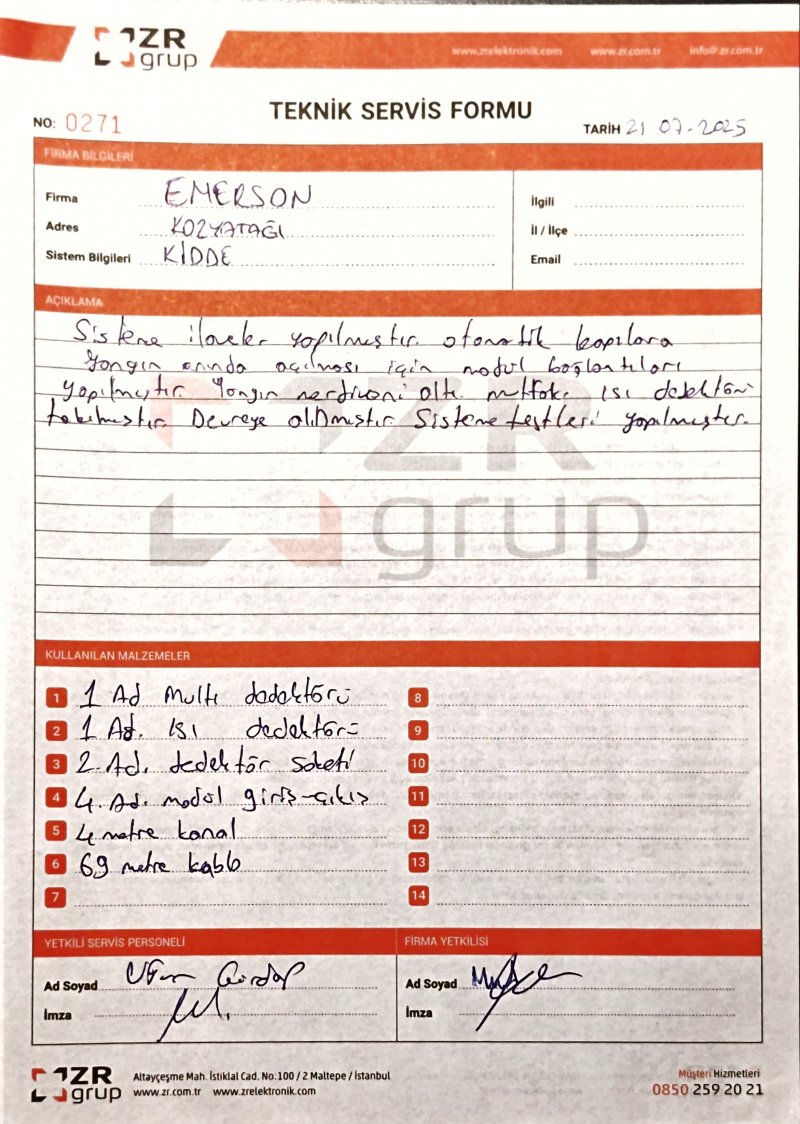 ZR
grup
www.zrelektronik.com www.zr.com.tr info@zr.com.tr
NO: 0271
TEKNİK SERVİS FORMU
TARİH 21 07-2025
FİRMA BİLGİLERİ
Firma EMERSON
Adres KOZYATAĞI
Sistem Bilgileri KİDDE
İlgili
İl / İlçe
Email
AÇIKLAMA
Sisteme ilaveler yapılmıştır. otomatik kapılara
Yangın anında açılması için modül bağlantıları
yapılmıştır. Yangın merdiveni altı. mutfak. ısı dedektörü
takılmıştır. Devreye alınmıştır. Sisteme testleri yapılmıştır.
ZR
grup
KULLANILAN MALZEMELER
1 1 Ad Multı dedektörü
2 1 Ad. ısı dedektörü
3 2. Ad. dedektör soketi
4 4. Ad. modül giriş-çıkış
5 4 metre kanal
6 69 metre kablo
7
8
9
10
11
12
13
14
YETKİLİ SERVİS PERSONELİ
Ad Soyad
İmza
FİRMA YETKİLİSİ
Ad Soyad
İmza
ZR
grup
Altayçeşme Mah. İstiklal Cad. No:100 / 2 Maltepe / İstanbul
www.zr.com.tr www.zrelektronik.com
Müşteri Hizmetleri
0850 259 20 21